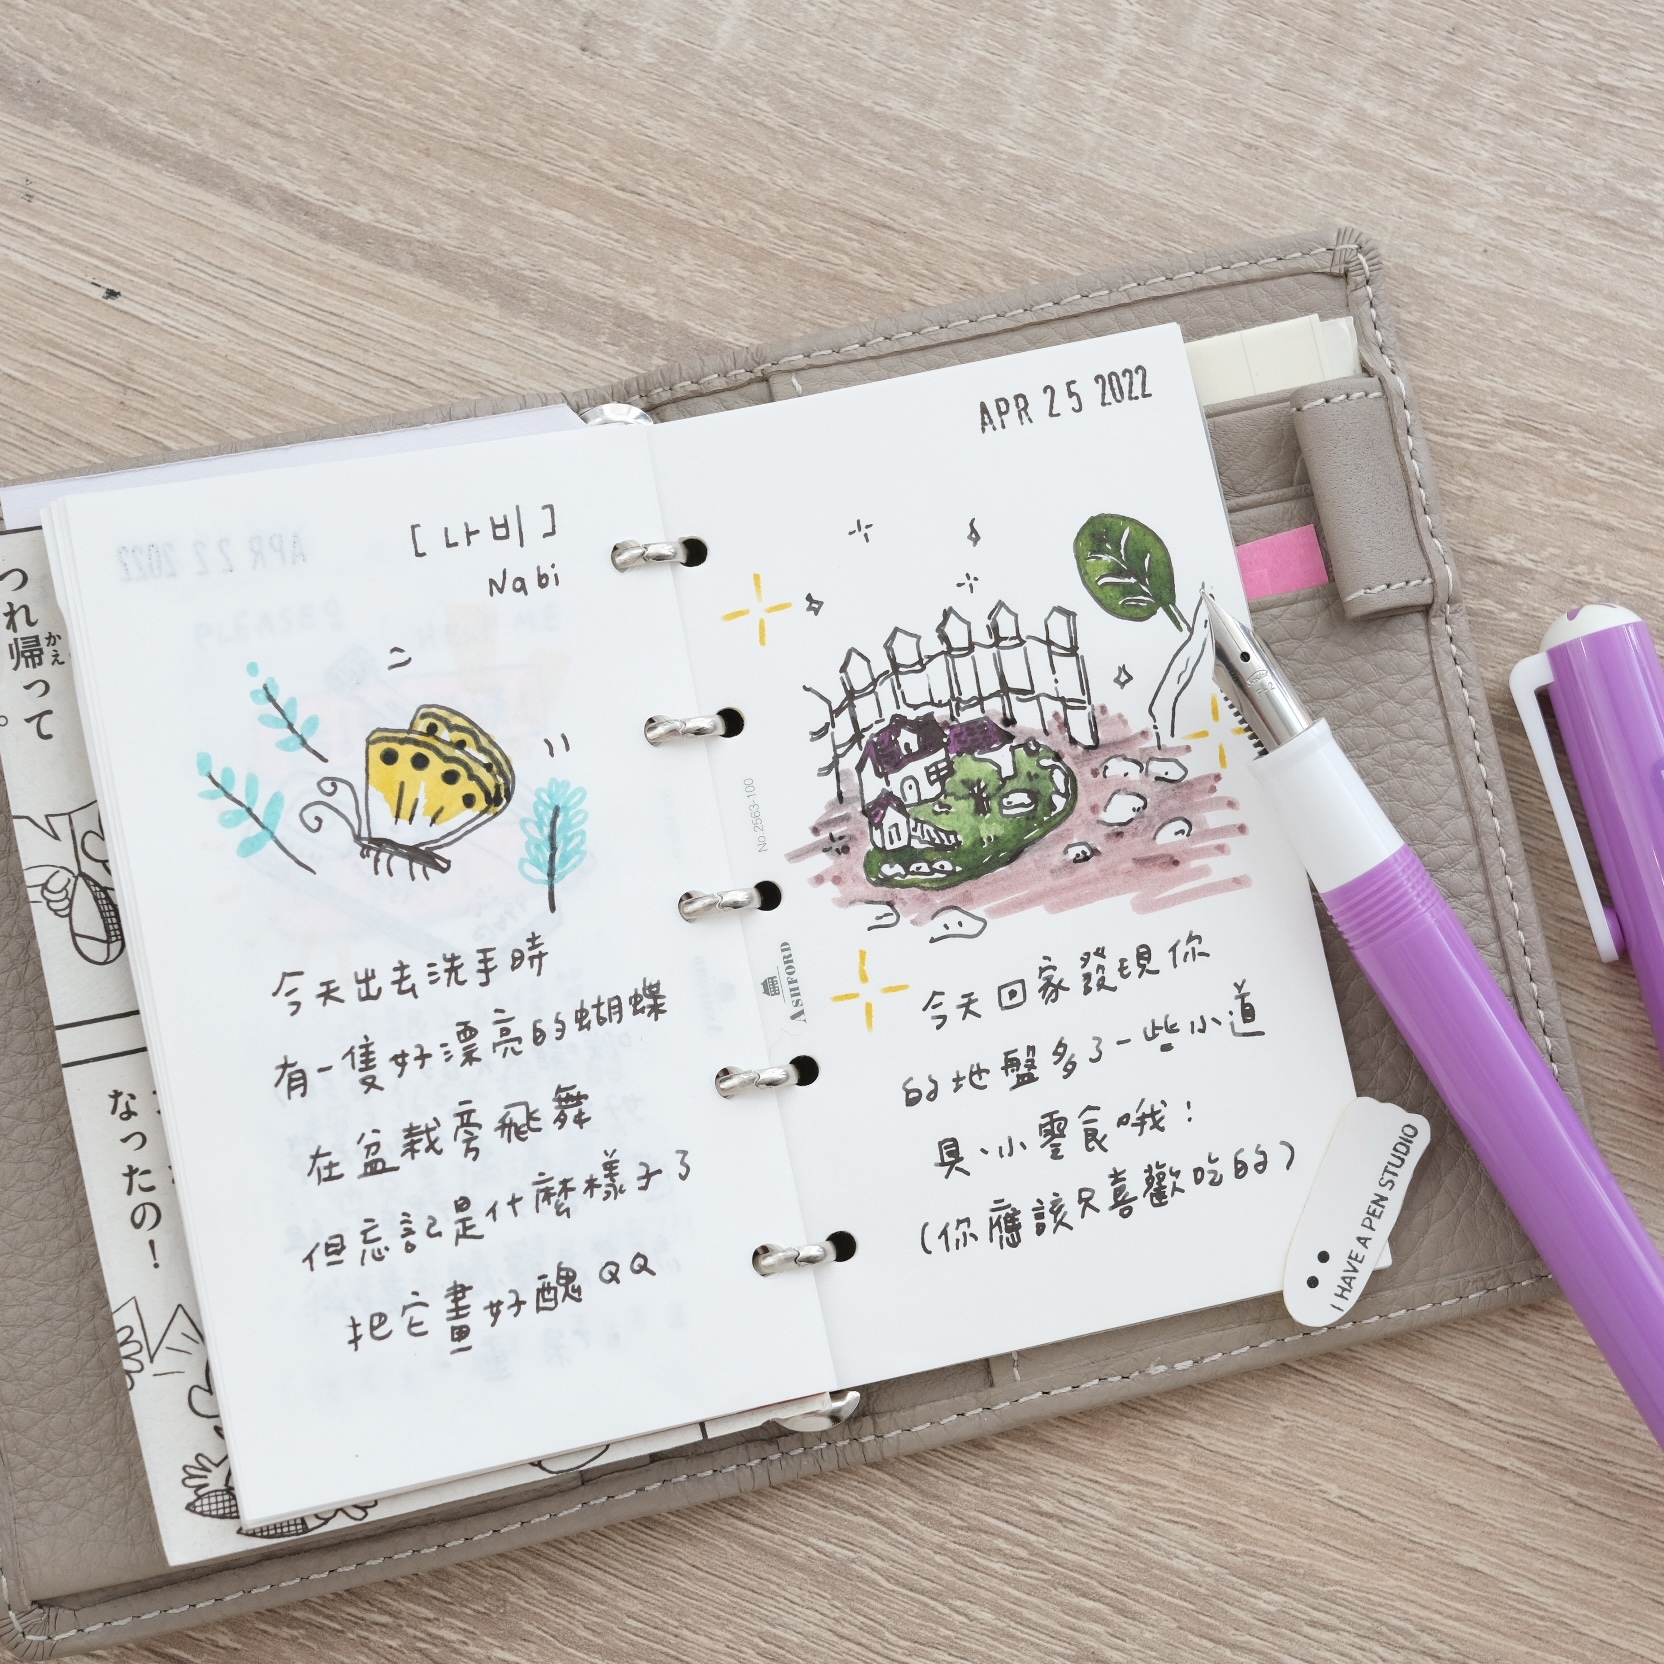 つれ帰って
かえ
なったの！
APR 22 2022
[나비]
Nabi
今天出去洗手時
有一隻好漂亮的蝴蝶
在盆栽旁飛舞
但忘記是什麼樣子了
把它畫好醜QQ
No.2563-100
ASHFORD
APR 25 2022
今天回家發現你
的地盤多了一些小道
具、小零食哦！
(你應該只喜歡吃的)
I HAVE A PEN STUDIO